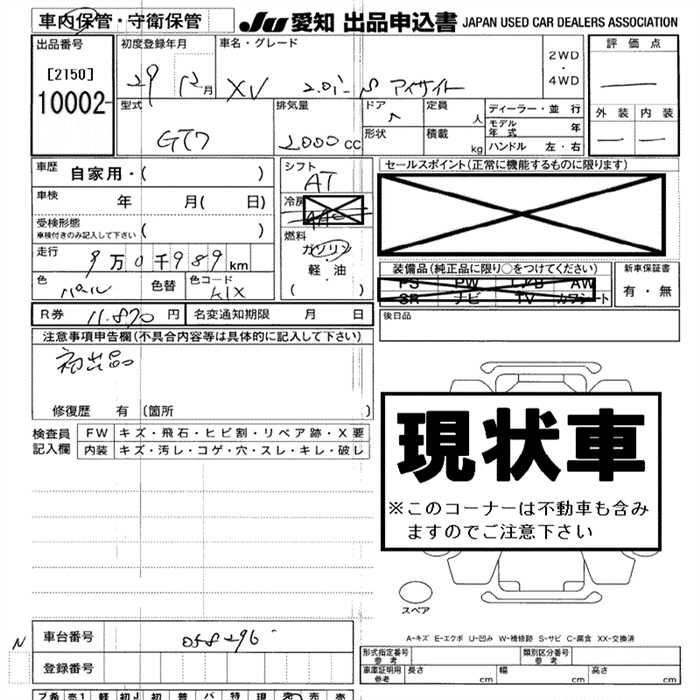 車内保管・守衛保管
JU 愛知 出品申込書 JAPAN USED CAR DEALERS ASSOCIATION
出品番号
[2150]
10002
初度登録年月
29 12月
車名・グレード
XV 2.0i-S アイサイト
2WD
・
4WD
評価点
外装 内装
型式
GT7
排気量
2000cc
ドア
形状
定員
人
積載
kg
ディーラー・並行
モデル年式 年
ハンドル 左・右
車歴
自家用・( )
車検
年 月( 日)
受検形態
車検付きのみ記入して下さい
( )
走行
9万0千989km
色
パール
色替
色コード
K1X
シフト
AT
冷房
燃料
ガソリン
軽・油
( )
セールスポイント(正常に機能するものに限ります)
装備品(純正品に限り○をつけてください)
PS PW AW
SR ナビ TV カワシート
新車保証書
有・無
R券 11,870円
名変通知期限 月 日
後日品
注意事項申告欄(不具合内容等は具体的に記入して下さい)
初出品
修復歴 有(箇所 )
検査員記入欄
FW キズ・飛石・ヒビ割・リペア跡・X要
内装 キズ・汚レ・コゲ・穴・スレ・キレ・破レ
現状車
※このコーナーは不動車も含みますのでご注意下さい
スペア
A-キズ E-エクボ U-凹み W-補修跡 S-サビ C-腐食 XX-交換済
N
車台番号
058296
登録番号
形式指定番号
参考
類別区分番号
参考
車庫証明用
参考
長さ cm
幅 cm
高さ cm